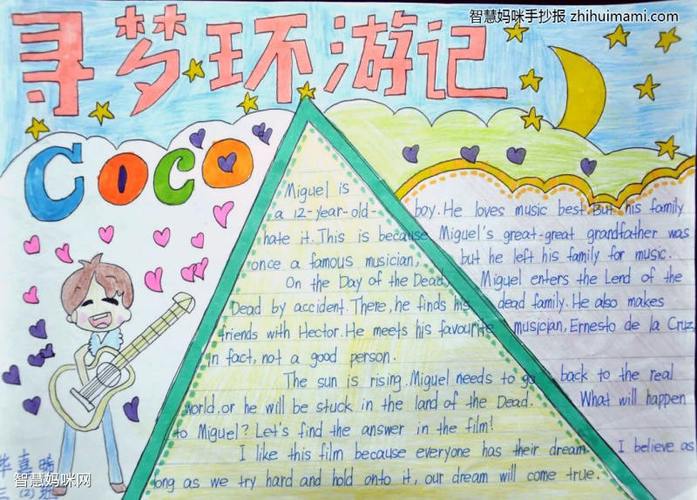 智慧妈咪手抄报 zhihuimami.com
寻梦环游记
COCO
Miguel is
a 12-year-old- boy. He loves music best. But his family
hate it. This is because Miguel's great-great grandfather was
once a famous musician, but he left his family for music.
On the Day of the Dead, Miguel enters the Lend of the
Dead by accident. There, he finds his dead family. He also makes
friends with Hector. He meets his favourite musician, Ernesto de la Cruz
in fact, not a good person.
The sun is rising. Miguel needs to go back to the real
world, or he will be stuck in the land of the Dead. What will happen
to Miguel? Let's find the answer in the film!
I like this film because everyone has their dream. I believe as
long as we try hard and hold onto it, our dream will come true.
智慧妈咪网